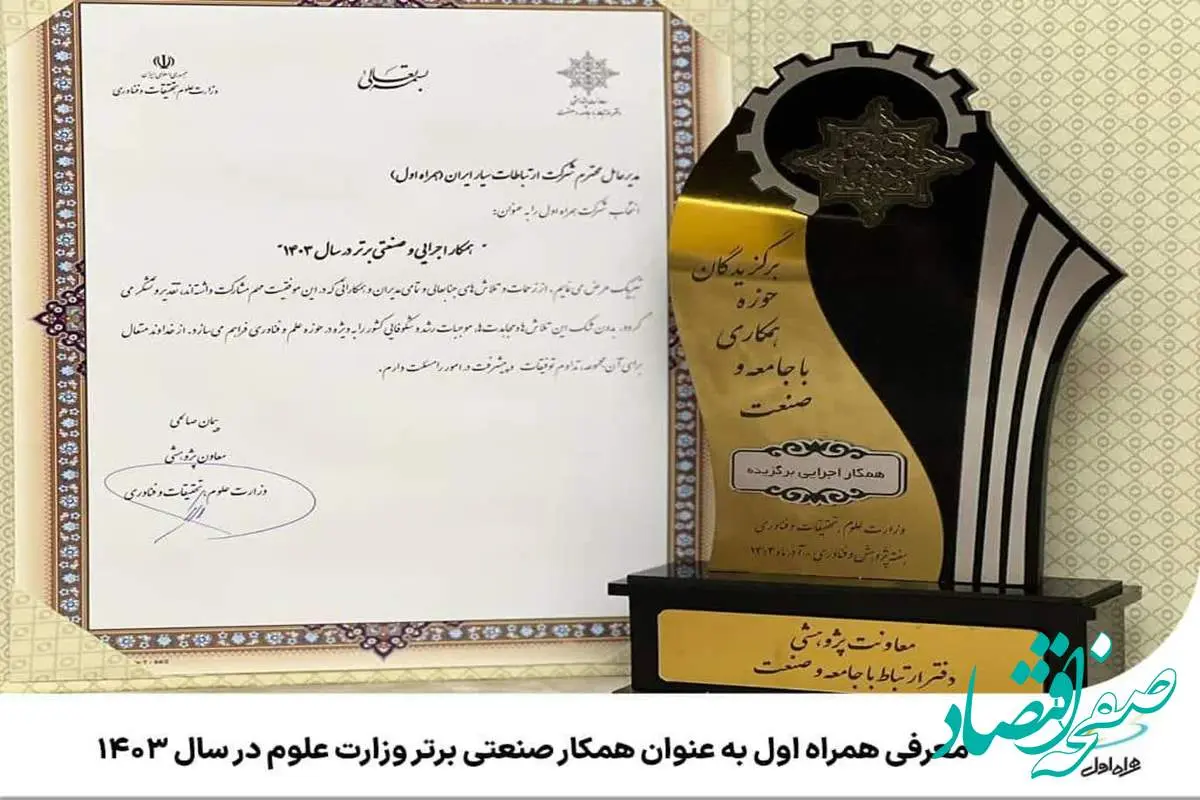 بسمه تعالی
جمهوری اسلامی ایران
وزارت علوم، تحقیقات و فناوری
معاونت پژوهشی
دفتر ارتباط با جامعه و صنعت
مدیرعامل محترم شرکت ارتباطات سیار ایران (همراه اول)
انتخاب شرکت همراه اول را به عنوان:
"همکار اجرایی و صنعتی برتر در سال ۱۴۰۳"
تبریک عرض می نمایم. از زحمات و تلاش های جنابعالی و تمامی مدیران و همکارانی که در این موفقیت مهم مشارکت داشته‌اند، تقدیر و تشکر می
گردد. بدون شک این تلاش‌ها و مجاهدت‌ها، موجبات رشد و شکوفایی کشور را به ویژه در حوزه علم و فناوری فراهم می سازد. از خداوند متعال
برای آن مجموعه، تداوم توفیقات و پیشرفت در امور را مسئلت دارم.
پیمان صالحی
معاون پژوهشی
وزارت علوم، تحقیقات و فناوری
برگزیدگان
حوزه
همکاری
با جامعه و
صنعت
همکار اجرایی برگزیده
وزارت علوم، تحقیقات و فناوری
هفته پژوهش و فناوری - آذر ماه ۱۴۰۳
معاونت پژوهشی
دفتر ارتباط با جامعه و صنعت
صفحه اقتصاد
معرفی همراه اول به عنوان همکار صنعتی برتر وزارت علوم در سال ۱۴۰۳
همراه اول